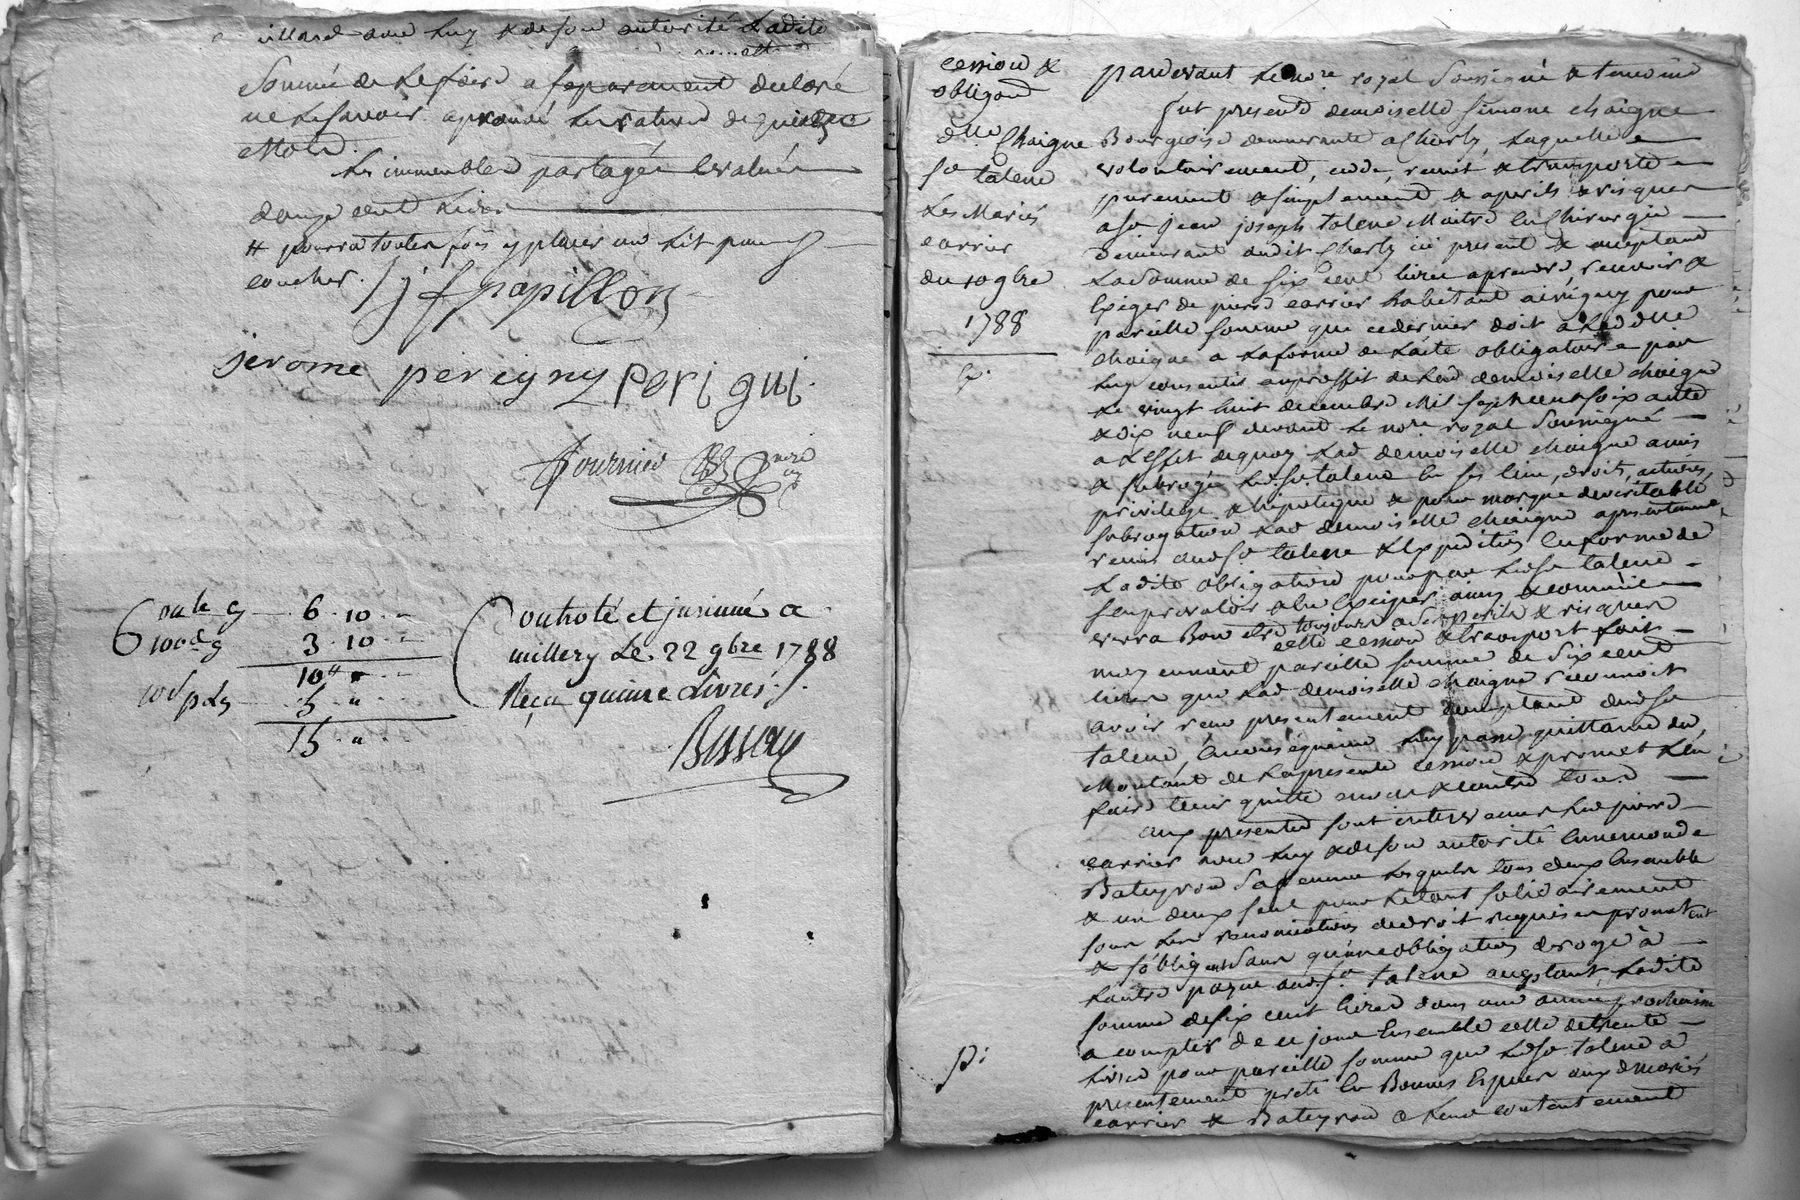 villard avec luy & de son autorité Ladite
Sommée de le faire a separement declaré
ne le savoir. aprouvé la rature de quinze
mots.
Les immeubles partagés Evalués
douze cent livres
# pourra toutes fois y placer un lit pour y
coucher. / j f papillon
jerome perigny perigui
fournier nore
6 10
100e 3 10
10 "
10s pr L 5 "
15 "
Controlé et insinué a
millery Le 22 9bre 1788
Reçu quinze Livres
Bussery
cession &
obligaõn
dlle Chaigne
sr talene
Les Mariés
carrier
du 10 9bre
1788
pardevant Le nore royal Soussigné & temoins
fut presente demoiselle simone chaigne
Bourgeoise demeurante a Charly, laquelle
volontairement, cede, remet & transporte
purement & simplement & a perils & risques
a sr jean joseph talene Maitre En Chirurgie
demeurant audit Charly icy present & acceptant
La Somme de six cent livres a prendre, recevoir &
Exiger de pierre carrier habitant a irigny pour
pareille somme que ce dernier doit a Lad. dlle
chaigne a La forme de L'acte obligatoire par
luy consenti au proffit de Lad. demoiselle chaigne
Le vingt huit decembre Mil sept cent soixante
& dix neuf devant Le nore royal Soussigné
a L'effet de quoy Lad. demoiselle chaigne a mis
& subrogé Led. sr talene En ses lieu, droits, actions,
privilege & hipoteque & pour marque de veritable
subrogation Lad. demoiselle chaigne a presentement
remis aud. sr talene L'Expedition En forme de
Ladite obligation pour par Led. sr talene
S'en prevaloir & En Exiger ainsy & comme il
verra Bon Etre toujours a ses perils & risques
cette cession & transport fait
moyennant pareille somme de Six cent
livres que Lad. demoiselle chaigne reconnoit
avoir reçu presentement comptant dud. sr
talene, En consequence luy passe quittance du
Montant de La presente cession & promet L'en
faire tenir quitte envers & contre tous
aux presentes sont intervenus Led. pierre
carrier avec luy & de son autorité Ennemonde
Bateyron Sa femme Lesquels tous deux Ensemble
& un d'eux seul pour Le tout solidairement
sous Les renonciations de droit requises promettent
& s'obligent Sans qu'une obligation deroge à
L'autre payer aud. sr talene acceptant, Ladite
somme de six cent livres dans une année prochaine
a compter de ce jour Ensemble celle de trente
livres pour pareille somme que Led. sr talene a
presentement preté En Bonnes Especes aux d. mariés
carrier & Bateyron a Leur contentement